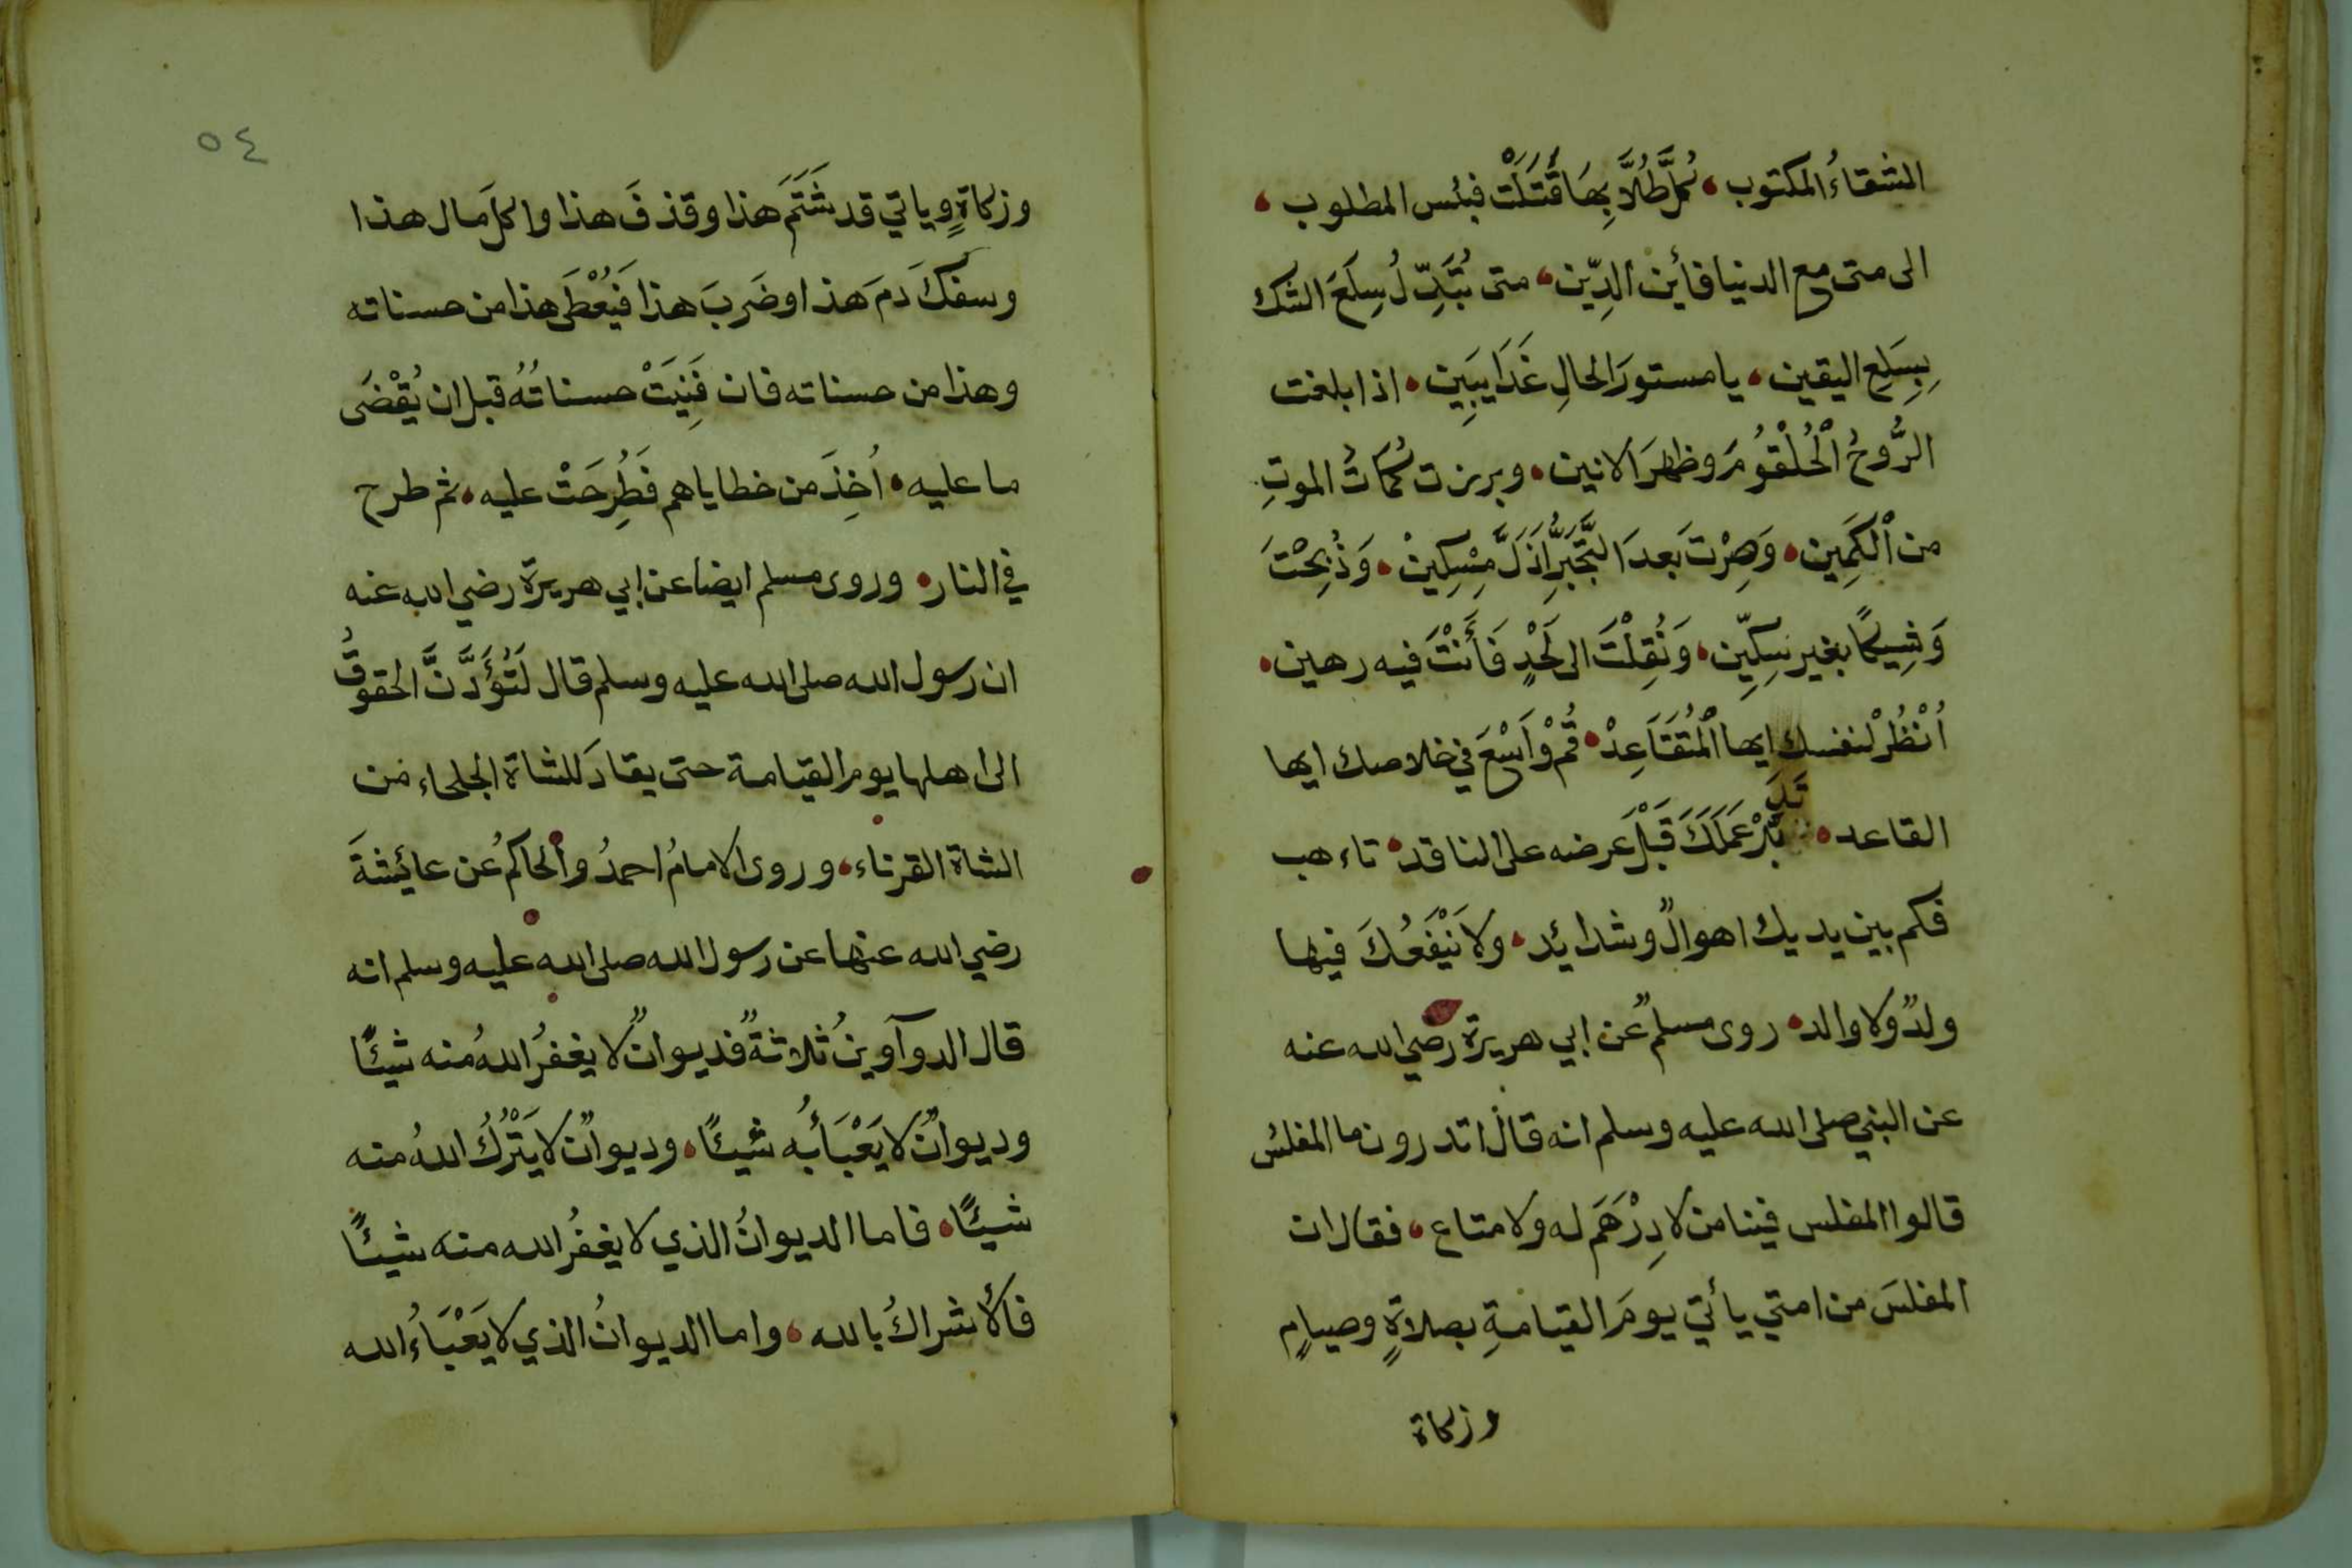 الشقاءُ المكتوب، كم طُلَّابِهَا قَتَلَتْ فبئس المطلوب،
الى متى مع الدنيا فأين الدِّين، متى تُبَدِّلُ سِلَعَ الشك
بِسِلَعِ اليقين، يا مستورَ الحالِ غَدًا يَبِين، اذا بلغت
الرُّوحُ الْحُلْقُومَ وظهرَ الانين، وبرزت كُمَاتُ الموتِ
من الْكَمِين، وَصِرْتَ بَعدَ التَّجَبُّرِ اَذَلَّ مِسْكِينْ، وَذُبِحْتَ
وَشِيكًا بغير سِكِّين، وَنُقِلْتَ الى لَحْدٍ فَأَنْتَ فيه رهين،
اُنْظُرْ لنفسك ايها الْمُتَقَاعِدْ، قُمْ وَاَسْعَ في خلاصك ايها
القاعد، تَدَبَّرْ عَمَلَكَ قَبْلَ عَرضه على الناقد، تاءهب
فكم بين يديك اهوالٌ وشدايئد، ولا يَنْفَعُكَ فيها
ولدٌ ولا والد، روى مسلمٌ عن ابي هريرة رضي الله عنه
عن النبي صلى الله عليه وسلم انه قال اتدرون ما المفلسُ
قالوا المفلس فينا من لا دِرْهَمَ له ولا متاع، فقال ان
المفلسَ من امتي يأتي يومَ القيامةِ بصلاةٍ وصيامٍ
وزكاة
٥٤
وزكاةٍ وياتي قد شَتَمَ هذا وقذفَ هذا واكلَ مال هذا
وسفكَ دمَ هذا وضَربَ هذا فَيُعْطَى هذا من حسناته
وهذا من حسناته فان فَنِيَتْ حسناتُهُ قبل ان يُقْضَى
ما عليه، اُخِذَ من خطاياهم فَطُرِحَتْ عليه، ثم طرح
في النار، وروى مسلم ايضا عن ابي هريرة رضي الله عنه
ان رسول الله صلى الله عليه وسلم قال لَتُؤَدَّنَّ الحقوقُ
الى اهلها يوم القيامة حتى يقادَ للشاة الجلحاء من
الشاة القرناء، وروى الامامُ احمدُ والحاكمُ عن عائيشةَ
رضي الله عنها عن رسول الله صلى الله عليه وسلم انه
قال الدوآوينُ ثلاثةٌ فديوانٌ لا يغفرُ اللهُ منه شيئًا
وديوانٌ لا يَعْبَأُ به شيئًا، وديوانٌ لا يَتْرُكُ اللهُ منه
شيئًا، فاما الديوانُ الذي لا يغفرُ الله منه شيئًا
فألاشراكُ بالله، واما الديوانُ الذي لا يَعْبَاءُ الله